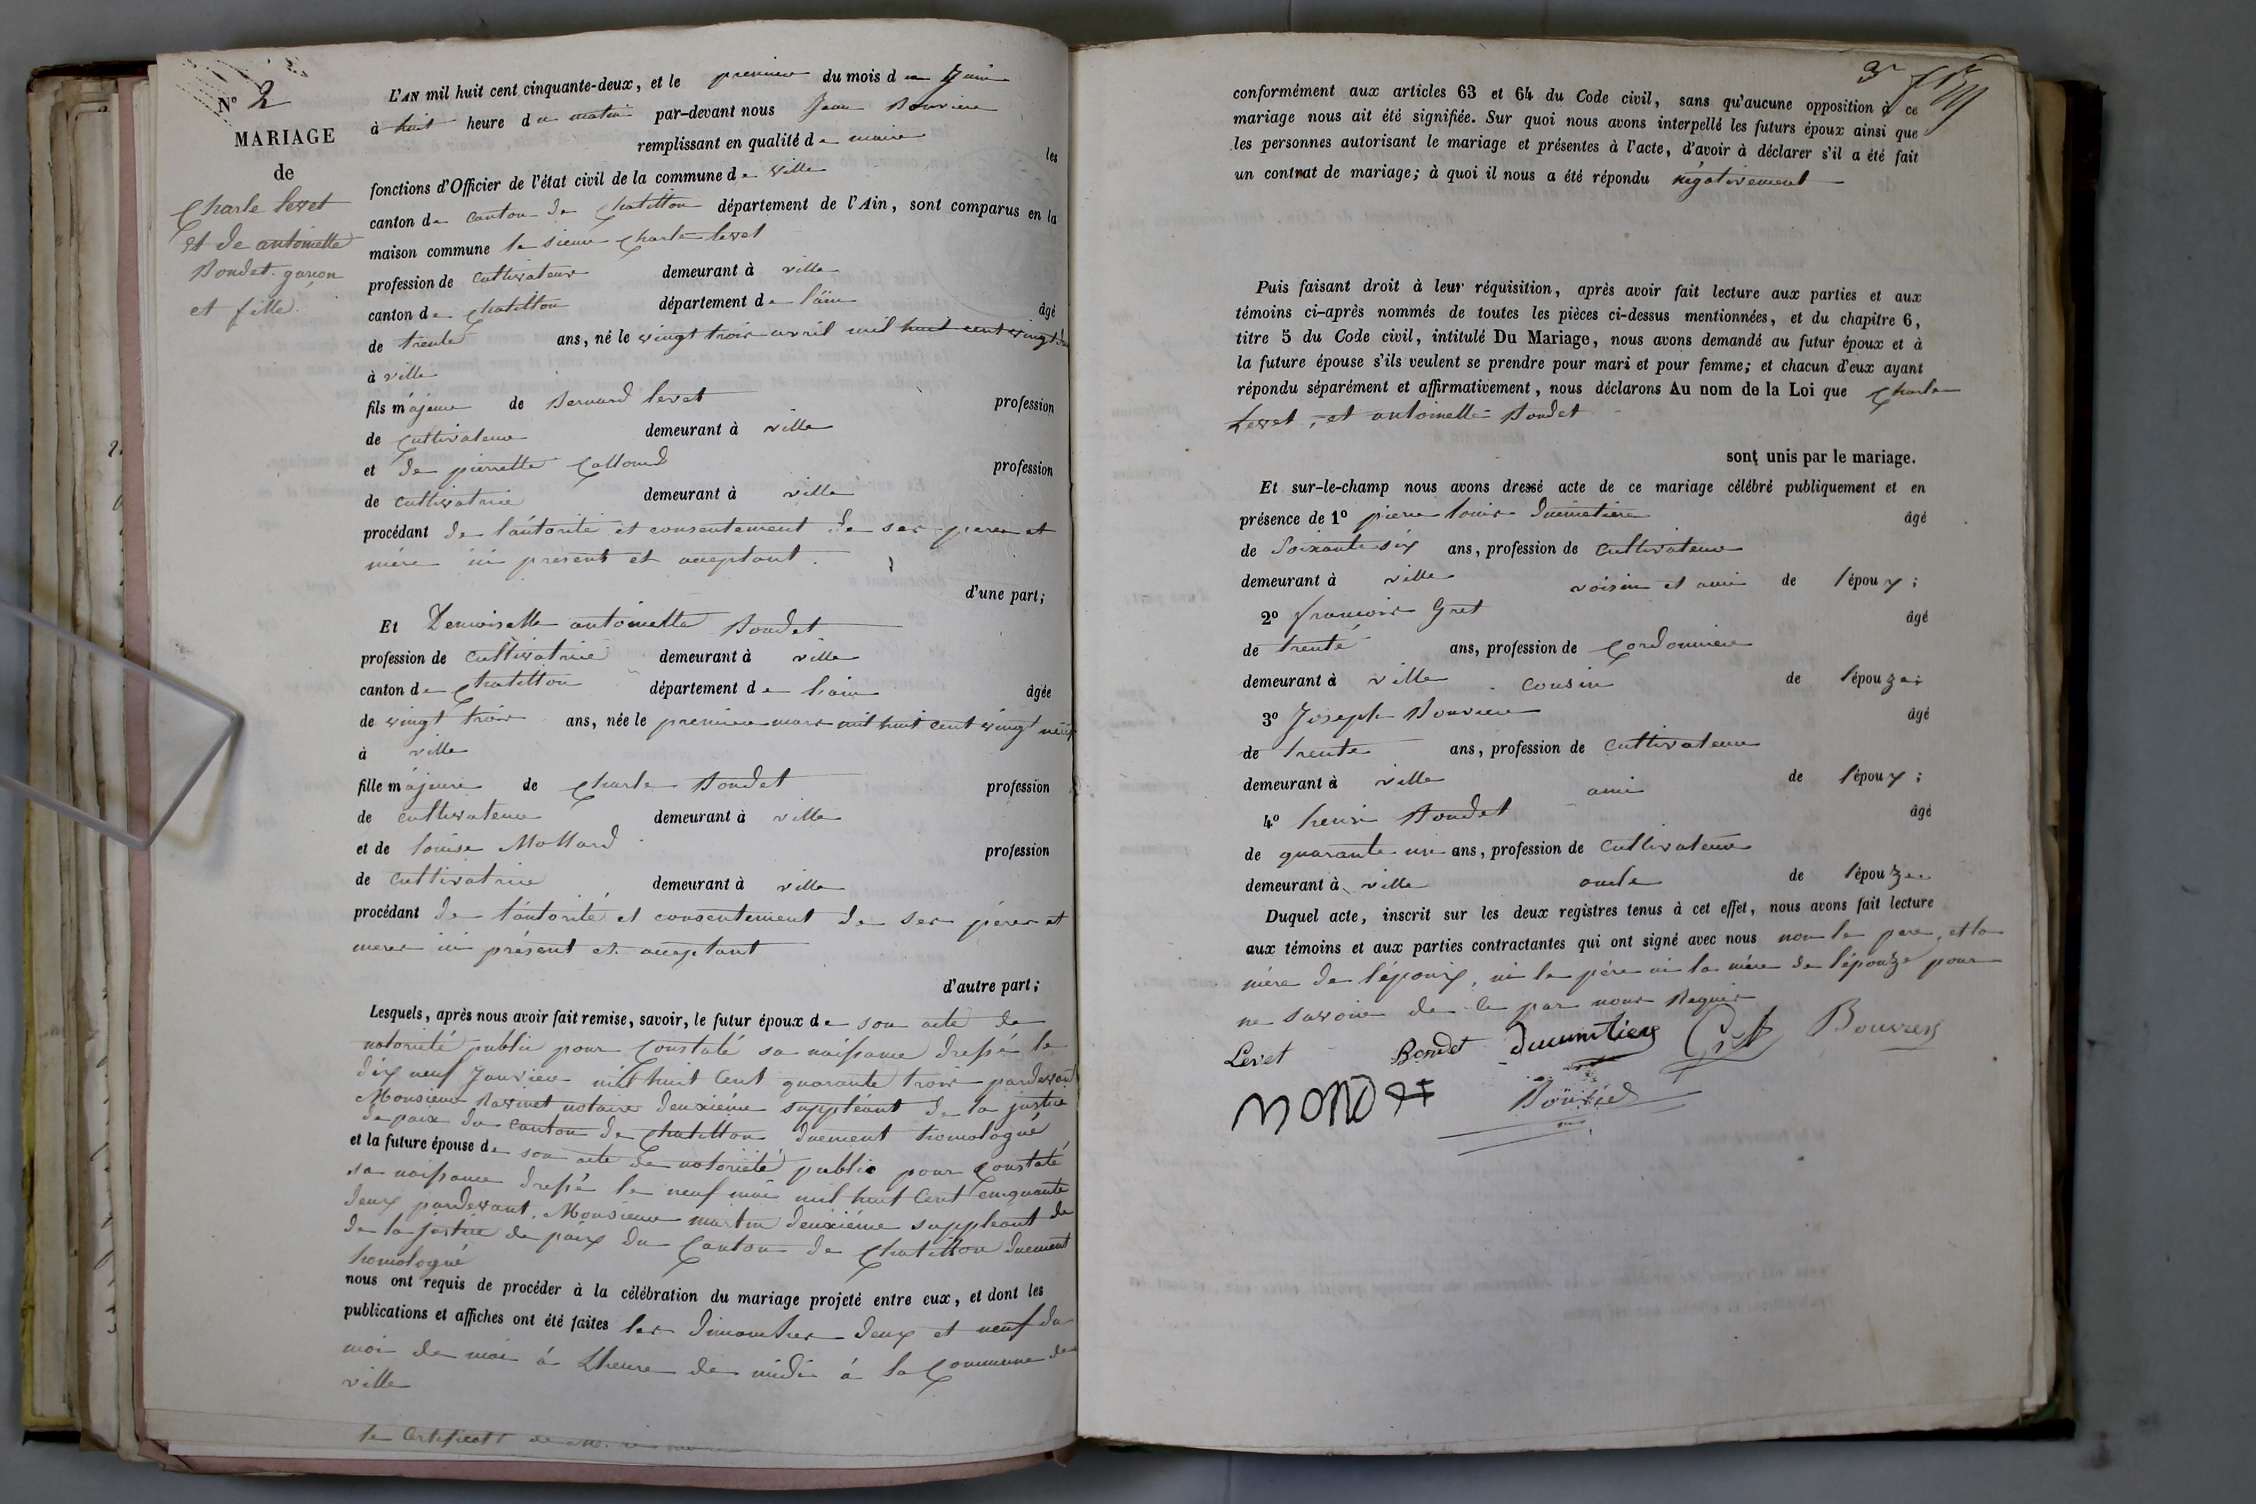 N° 2
MARIAGE
de
Charle Levet
et de antoinette
Bondet garçon
et fille.
L'AN mil huit cent cinquante-deux, et le premier du mois de Juin
à huit heure du matin par-devant nous Jean Bouvier
remplissant en qualité de maire les
fonctions d'Officier de l'état civil de la commune de ville
canton de canton de Chatillon département de l'Ain, sont comparus en la
maison commune le sieur Charle Levet
profession de Cultivateur demeurant à ville
canton de Chatillon département de l'ain âgé
de trente ans, né le vingt trois avril mil huit cent vingt
à ville
fils majeur de Bernard Levet profession
de Cultivateur demeurant à ville
et de pierrette Collomd profession
de cultivatrice demeurant à ville
procédant de l'autorité et consentement de ses peres et
mère ici present et acceptant.
d'une part;
Et Demoiselle antoinette Bondet
profession de cultivatrice demeurant à ville
canton de Chatillon département de l'ain âgée
de vingt trois ans, née le premier mars mil huit cent vingt neuf
à ville
fille majeure de Charle Bondet profession
de cultivateur demeurant à ville
et de louise Mollard profession
de cultivatrice demeurant à ville
procédant de l'autorité et consentement de ses péres et
meres ici présent et acceptant
d'autre part;
Lesquels, après nous avoir fait remise, savoir, le futur époux de son acte de
notorieté public pour Constaté sa naissance dressé le
dix neuf Janvier mil huit Cent quarante trois pardevant
Monsieur Ravinet notaire deuxiéme suppléant de la justice
de paix du canton de Chatillon duement homologué
et la future épouse de son acte de notorieté public pour Constaté
sa naissance dressé le neuf mai mil huit Cent Cinquante
deux pardevant Monsieur martin deuxiéme suppleant de
de la justice de paix du Canton de Chatillon duement
homologué
nous ont requis de procéder à la célébration du mariage projeté entre eux, et dont les
publications et affiches ont été faites les dimanches deux et neuf du
moi de mai à Lheure de midi à la Commune de
ville
le Certificat
3e
conformément aux articles 63 et 64 du Code civil, sans qu'aucune opposition à ce
mariage nous ait été signifiée. Sur quoi nous avons interpellé les futurs époux ainsi que
les personnes autorisant le mariage et présentes à l'acte, d'avoir à déclarer s'il a été fait
un contrat de mariage; à quoi il nous a été répondu négativement
Puis faisant droit à leur réquisition, après avoir fait lecture aux parties et aux
témoins ci-après nommés de toutes les pièces ci-dessus mentionnées, et du chapitre 6,
titre 5 du Code civil, intitulé Du Mariage, nous avons demandé au futur époux et à
la future épouse s'ils veulent se prendre pour mari et pour femme; et chacun d'eux ayant
répondu séparément et affirmativement, nous déclarons Au nom de la Loi que Charle
Levet, et antoinette Bondet
sont unis par le mariage.
Et sur-le-champ nous avons dressé acte de ce mariage célébré publiquement et en
présence de 1° pierre louis Ducimetiere âgé
de Soixante six ans, profession de cultivateur
demeurant à ville voisin et ami de l'époux;
2° francois Gret âgé
de trenté ans, profession de Cordonnier
demeurant à ville cousin de l'épouze;
3° Joseph Bouvier âgé
de trente ans, profession de cultivateur
demeurant à ville ami de l'époux;
4° henri Bondet âgé
de quarante un ans, profession de Cultivateur
demeurant à ville oncle de l'épouze.
Duquel acte, inscrit sur les deux registres tenus à cet effet, nous avons fait lecture
aux témoins et aux parties contractantes qui ont signé avec nous non le pere, et la
mére de l'époux, ni le pére ni la mére de l'épouze pour
ne savoir de ce par nous Requis
Levet Bondet Gret Bouvier
Bouvier